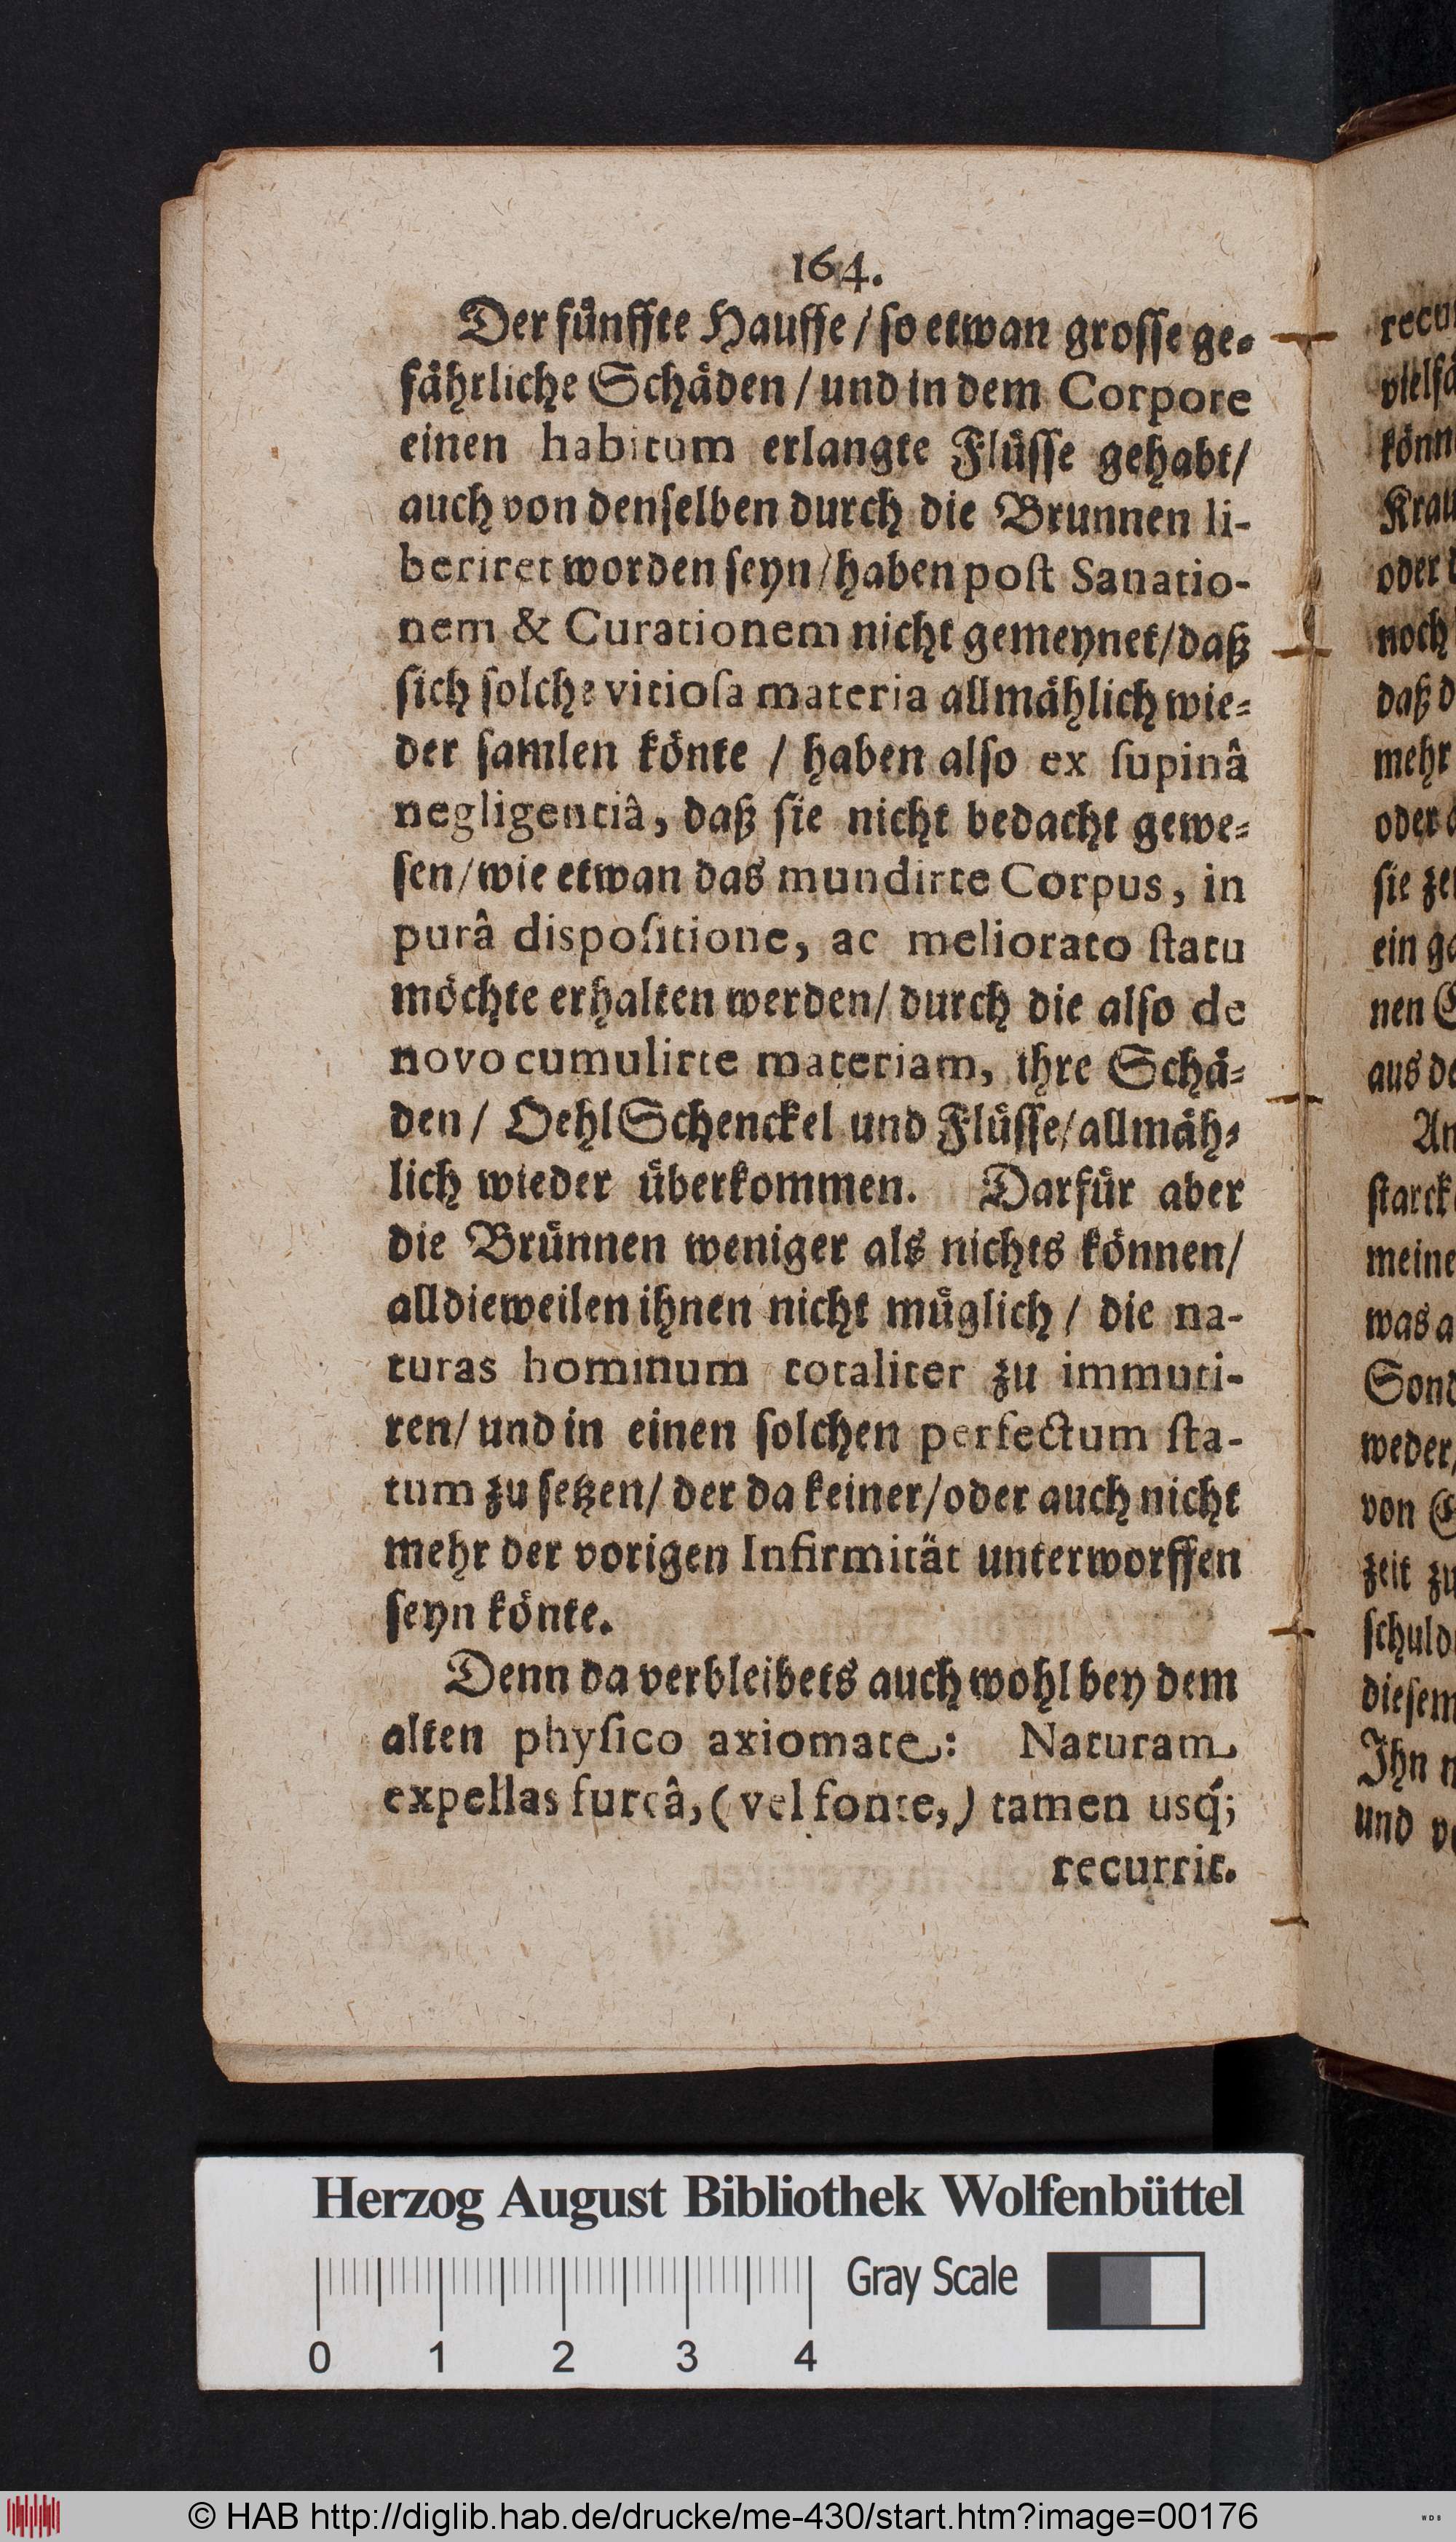 164.
Der fünffte Hauffe / so etwan grosse ge-
fährliche Schäden / und in dem Corpore
einen habitum erlangte Flüsse gehabt /
auch von denselben durch die Brunnen li-
beriret worden seyn / haben post Sanatio-
nem & Curationem nicht gemeynet / daß
sich solche vitiosa materia allmählich wie-
der samlen könte / haben also ex supinâ
negligentiâ, daß sie nicht bedacht gewe-
sen / wie etwan das mundirte Corpus, in
purâ dispositione, ac meliorato statu
möchte erhalten werden / durch die also de
novo cumulirte materiam, ihre Schä-
den / OehlSchenckel und Flüsse / allmäh-
lich wieder überkommen. Darfür aber
die Brünnen weniger als nichts können /
alldieweilen ihnen nicht müglich / die na-
turas hominum totaliter zu immuti-
ren / und in einen solchen perfectum sta-
tum zu setzen / der da keiner / oder auch nicht
mehr der vorigen Infirmität unterworffen
seyn könte.
Denn da verbleibets auch wohl bey dem
alten physico axiomate: Naturam
expellas furcâ, (vel fonte,) tamen usq́;
recurrit.
recur
vielfä
könn
Krau
oder
noch
daß d
mehr
oder
sie ze
ein ga
nen
aus de
An
starck
meine
was a
Sond
weder,
von
zeit zu
schuld
diesem
Ihn
und
Herzog August Bibliothek Wolfenbüttel
Gray Scale
0 1 2 3 4
© HAB http://diglib.hab.de/drucke/me-430/start.htm?image=00176
WDB